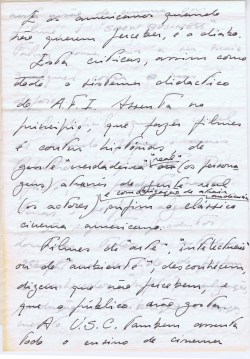 E os americanos quando
não querem perceber, é o diabo.
Estas críticas, assim como
todo o sistema didactico
do A.F.I. Assenta no
princípio, que fazer filmes
é contar histórias de
gente "verdadeira" "real" ou (os persona
gens), através de gente real
(os actores), enfim o clássico
cinema americano.
Filmes de "arte", "intelectuais"
ou de "ambiente", desconhecem,
dizem que não percebem,
que o público não gosta.
A U.S.C. tambem assenta
todo o ensino de cinema